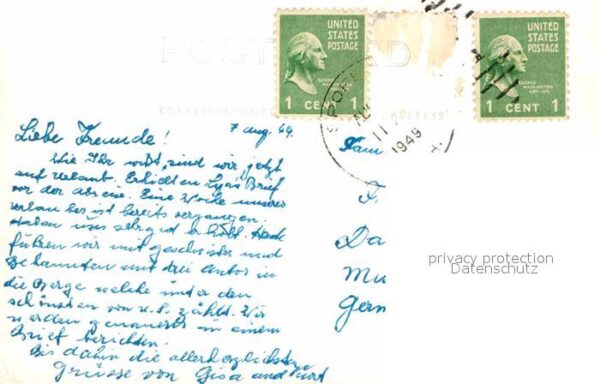 UNITED
STATES
POSTAGE
GEORGE
WASHINGTON
1 CENT 1
UNITED
STATES
POSTAGE
GEORGE
WASHINGTON
1 CENT 1
POST CARD
CORRESPONDENCE
ADDRESS
SPOK
AU
11
1949
Liebe Freunde!
7 Aug. 49.
Wie Ihr wißt, sind wir jetzt
auf Urlaub. Erhielten Brief
vor der Abreise. Eine Woche unseres
Urlaubes ist bereits vergangen.
Haben uns sehr gut erholt. Heute
führen wir mit geschwister und
Bekannten mit drei Autos in
die Berge welche unter den
schönsten von U.S. zählt. Wir
werden genaueres in einem
Brief berichten.
Bis dahin die allerherzlichsten
Grüsse von Gisa and Kurt
Fam
F
Da
Mu
Germ
privacy protection
Datenschutz